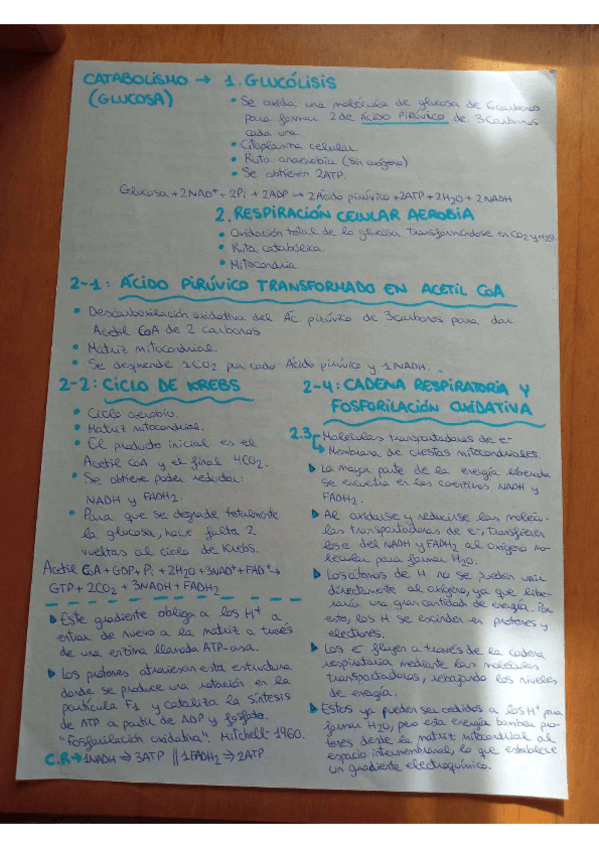 CATABOLISMO → 1. GLUCÓLISIS
(GLUCOSA)
• Se oxida una molécula de glucosa de 6 carbonos
para formar 2 de ÁCIDO PIRÚVICO de 3 carbonos
cada una
• Citoplasma celular
• Ruta anaerobia (sin oxígeno)
• Se obtienen 2ATP.
Glucosa + 2NAD+ + 2Pi + 2ADP → 2 Ácido pirúvico + 2ATP + 2H2O + 2NADH
2. RESPIRACIÓN CELULAR AEROBIA
• Oxidación total de la glucosa transformándose en CO2 y H2O
• Ruta catabólica
• Mitocondria
2-1: ÁCIDO PIRÚVICO TRANSFORMADO EN ACETIL CoA
• Descarboxilación oxidativa del Ác. pirúvico de 3 carbonos para dar
Acetil CoA de 2 carbonos
• Matriz mitocondrial
• Se desprende 1CO2 por cada Ácido pirúvico y 1NADH.
2-2: CICLO DE KREBS
• Ciclo aerobio.
• Matriz mitocondrial.
• El producto inicial es el
Acetil CoA y el final 4CO2.
• Se obtiene poder reductor:
NADH y FADH2.
• Para que se degrade totalmente
la glucosa, hace falta 2
vueltas al ciclo de Krebs.
Acetil CoA + GDP + Pi + 2H2O + 3NAD+ + FAD+ →
GTP + 2CO2 + 3NADH + FADH2
▸ Este gradiente obliga a los H+ a
entrar de nuevo a la matriz a través
de una enzima llamada ATP-asa.
▸ Los protones atraviesan esta estructura
donde se produce una rotación en la
partícula F1 y cataliza la síntesis
de ATP a partir de ADP y fosfato.
"Fosforilación oxidativa". Mitchell-1960.
C.R → 1NADH → 3ATP || 1FADH2 → 2ATP
2-4: CADENA RESPIRATORIA Y
FOSFORILACIÓN OXIDATIVA
2.3 Moléculas transportadoras de e-
Membrana de crestas mitocondriales.
▸ La mayor parte de la energía liberada
se encuentra en las coenzimas NADH y
FADH2.
▸ Al oxidarse y reducirse las molécu-
las transportadoras de e-, transfieren
los e- del NADH y FADH2 al oxígeno mo-
lecular para formar H2O.
▸ Los átomos de H no se pueden unir
directamente al oxígeno, ya que libe-
raría una gran cantidad de energía. Por
esto, los H se escinden en protones y
electrones.
▸ Los e- fluyen a través de la cadena
respiratoria mediante las moléculas
transportadoras, rebajando los niveles
de energía.
▸ Estos ya pueden ser cedidos a los H+ para
formar H2O, pero esta energía bombea pro-
tones desde la matriz mitocondrial al
espacio intermembranal, lo que establece
un gradiente electroquímico.